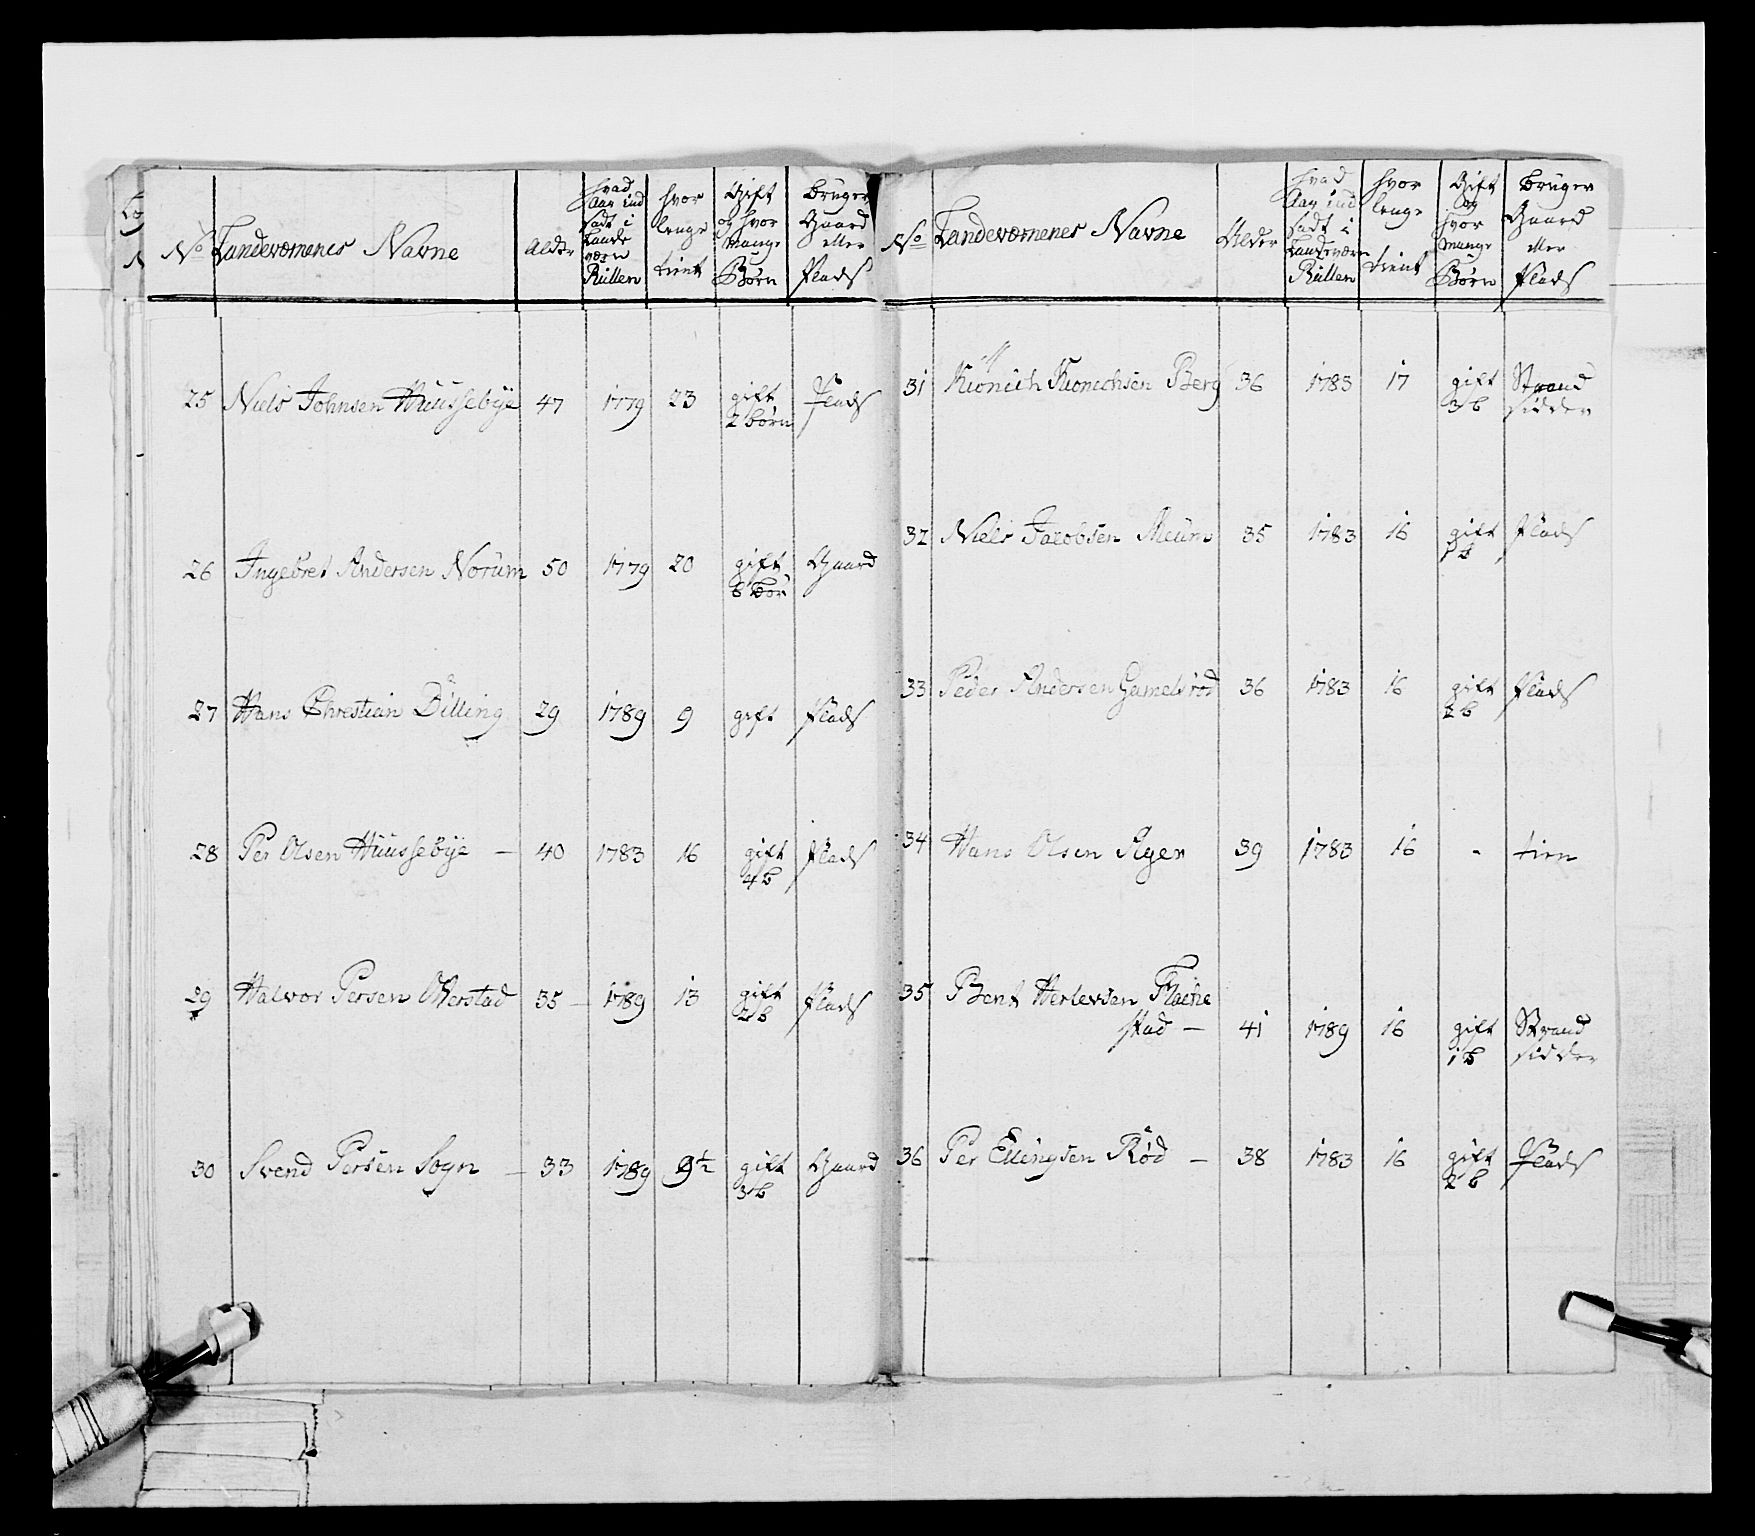 No Landeværnenes Navne Alder hvad Aar ind sadt i Lande værn Rullen hvor lenge tient Gift og hvor mange Børn bruger Gaard eller Plads
25 Niels Johnsen Huussebÿe 47 1779 23 gift Plads
2 børn
26 Ingebret Andersen Norum 50 1779 20 gift Gaard
6 bør
27 Hans Christian Dilling 29 1789 9 gift Plads
28 Per Olsen Huussebÿe — 40 1783 16 gift Plads
4 b
29 Halvor Persen Otterstad 35 — 1789 13 gift Plads
2 b
30 Svend Persen Sogn — 33 1789 9½ gift Gaard
3 b
No Landeværnenes Navne Alder hvad Aar ind sadt i Landeværn Rullen hvor lenge tient Gift og hvor mange Børn bruger Gaard eller Plads
31 Kionich Kionichsen Berg 36 1783 17 gift Strand
3 b sidder
32 Niels Jacobsen Meum 35 1783 16 gift Plads
1 b
33 Peder Andersen Gamelsrød 36 1783 16 gift Plads
2 b
34 Hans Olsen Ager 39 1783 16 - tien
35 Bent Herlevsen Flache
stad — 41 1789 16 gift Strand
1 b sidder
36 Per Ellingsen Rød — 38 1783 16 gift Plads
2 b